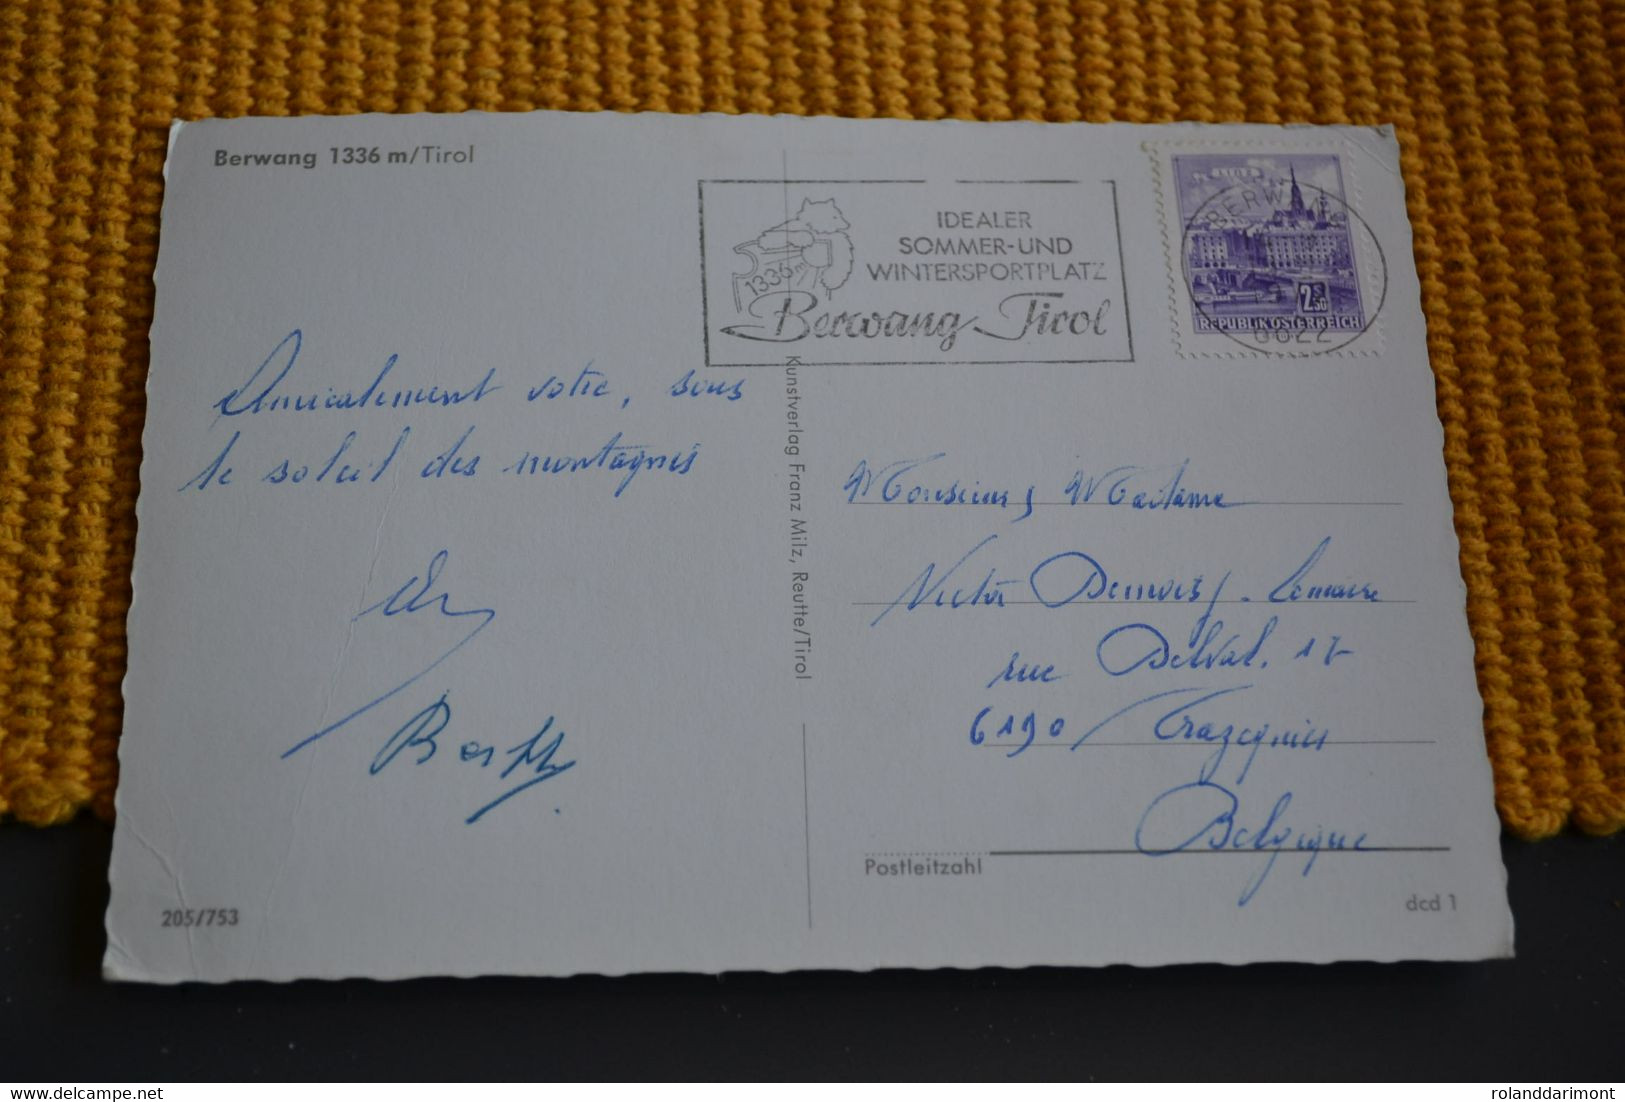 Berwang 1336 m/Tirol
IDEALER
SOMMER-UND
WINTERSPORTPLATZ
1336m
Berwang Tirol
LINZ
BERWANG
6622
2S50
REPUBLIK ÖSTERREICH
Amicalement votre, sous
le soleil des montagnes
Kunstverlag Franz Milz, Reutte/Tirol
Monsieur, Madame
Victor Lemaire
rue Delval. 17
6190 Trazegnies
Belgique
Postleitzahl
205/753
dcd 1
delcampe.net
rolanddarimont